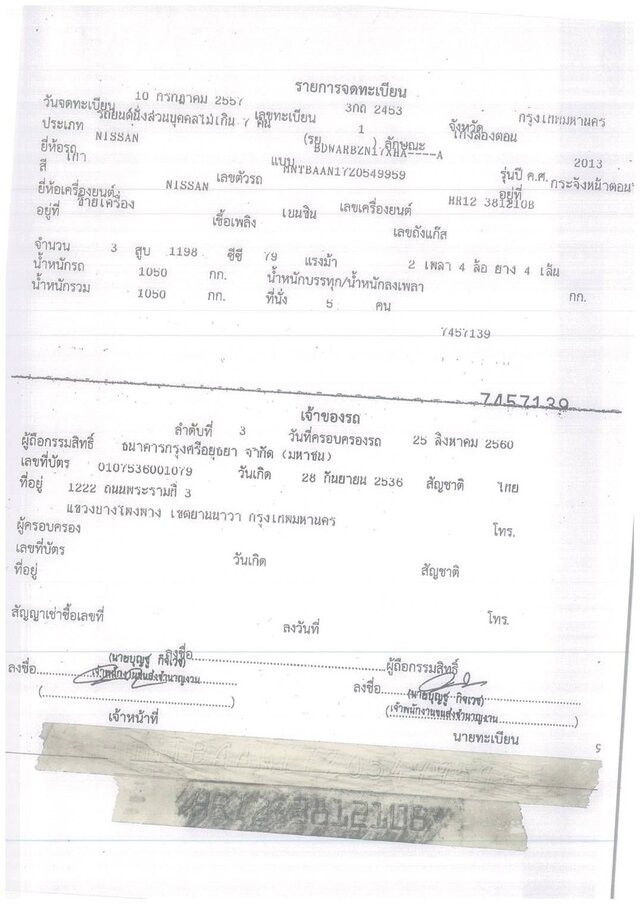 รายการจดทะเบียน
วันจดทะเบียน 10 กรกฎาคม 2557 เลขทะเบียน 3กถ 2453 จังหวัด กรุงเทพมหานคร
ประเภท รถยนต์นั่งส่วนบุคคลไม่เกิน 7 คน (รย 1 ) ลักษณะ เก๋งสองตอน
ยี่ห้อรถ NISSAN แบบ BDWARBZN17XHA----A รุ่นปี ค.ศ. 2013
สี เทา เลขตัวรถ MNTBAAN17Z0549959 อยู่ที่ กระจังหน้าตอน
ยี่ห้อเครื่องยนต์ NISSAN เลขเครื่องยนต์ HR12 381210B
อยู่ที่ ซ้ายเครื่อง เชื้อเพลิง เบนซิน เลขถังแก๊ส
จำนวน 3 สูบ 1198 ซีซี 79 แรงม้า 2 เพลา 4 ล้อ ยาง 4 เส้น
น้ำหนักรถ 1050 กก. น้ำหนักบรรทุก/น้ำหนักลงเพลา กก.
น้ำหนักรวม 1050 กก. ที่นั่ง 5 คน
7457139
7457139
เจ้าของรถ
ลำดับที่ 3 วันที่ครอบครองรถ 25 สิงหาคม 2560
ผู้ถือกรรมสิทธิ์ ธนาคารกรุงศรีอยุธยา จำกัด (มหาชน)
เลขที่บัตร 0107536001079 วันเกิด 28 กันยายน 2536 สัญชาติ ไทย
ที่อยู่ 1222 ถนนพระรามที่ 3
แขวงบางโพงพาง เขตยานนาวา กรุงเทพมหานคร โทร.
ผู้ครอบครอง
เลขที่บัตร วันเกิด สัญชาติ
ที่อยู่
โทร.
สัญญาเช่าซื้อเลขที่ ลงวันที่
ลงชื่อ ผู้ถือกรรมสิทธิ์
(นายบุญชู กิจเวช)
ลงชื่อ เจ้าพนักงานขนส่งชำนาญงาน ลงชื่อ
(นายบุญชู กิจเวช)
(เจ้าพนักงานขนส่งชำนาญงาน)
เจ้าหน้าที่ นายทะเบียน
5